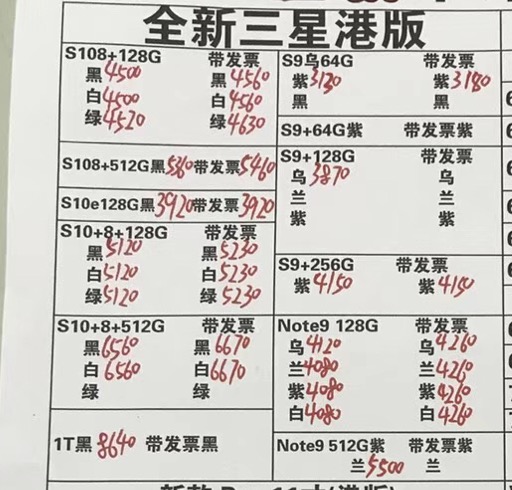 全新三星港版
S108+128G 带发票
黑4500 黑4560
白4500 白4560
绿4520 绿4630
S108+512G黑5360带发票5460
S10e128G黑3920带发票3920
S10+8+128G 带发票
黑5120 黑5230
白5120 白5230
绿5120 绿5230
S10+8+512G 带发票
黑6560 黑6670
白6560 白6670
绿 绿
1T黑8640 带发票黑
S9乌64G 带发票
紫3130 紫3180
黑 黑
S9+64G紫 带发票紫
S9+128G 带发票
乌3870 乌
兰 兰
紫 紫
S9+256G 带发票
紫4150 紫4150
Note9 128G 带发票
乌4120 乌4260
兰4080 兰4260
紫4080 紫4260
白4080 白4260
Note9 512G紫 带发票紫
兰5500 兰